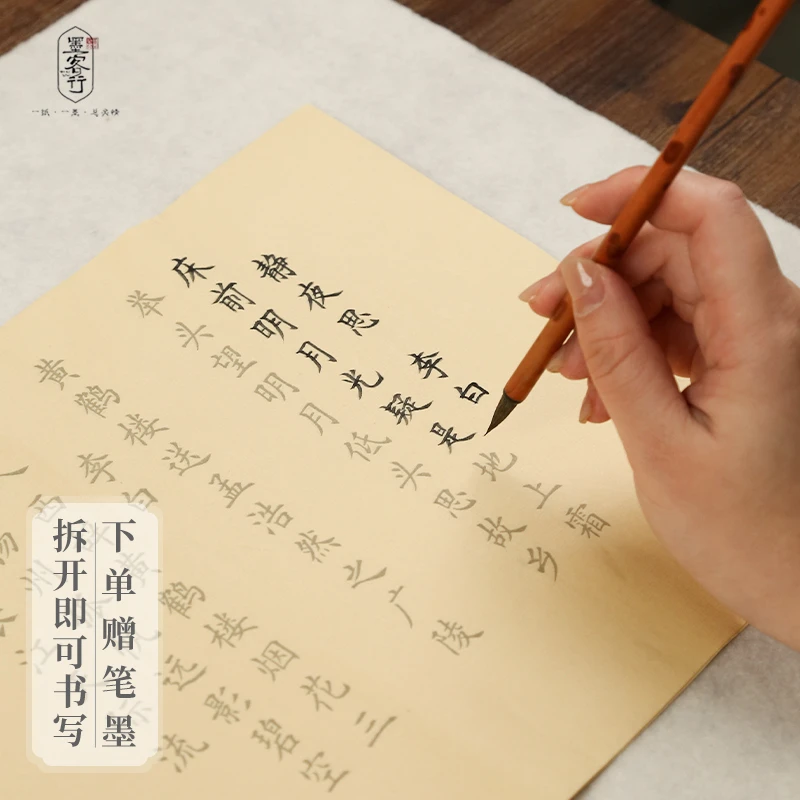 墨客行
静夜思 李白
床前明月光疑是地上霜
举头望明月低头思故乡
黄鹤楼送孟浩然之广陵
李白
人西辞黄鹤楼烟花三
州孤帆远影碧空
江天际流
下单赠笔墨
拆开即可书写